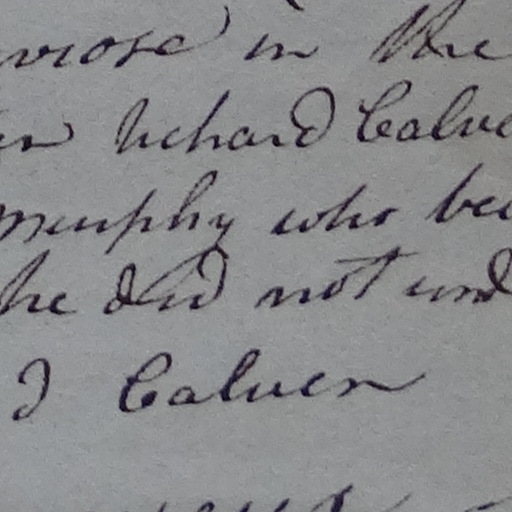 in the
Richard Calve
murphy who be
he did not und
J Calven